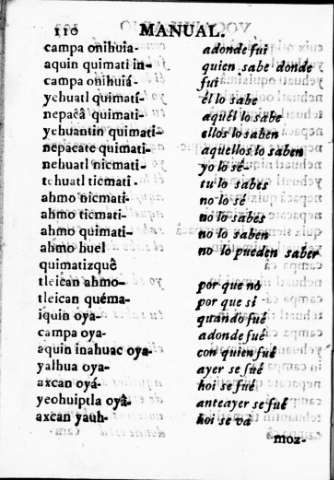 110 MANUAL.
campa onihuia- adonde fui
aquin quimati in- quien sabe donde
campa onihuiá- fui
yehuatl quimati- él lo sabe
nepacâ quimati- aquél lo sabe
yehuantin quimati- ellos lo saben
nepacate quimati- aquellos lo saben
nehuatl nicmati- yo lo sé-
tehuatl ticmati- tu lo sabes
ahmo nicmati- no lo sé
ahmo ticmati- no lo sabes
ahmo quimati- no lo saben
ahmo huel no lo pueden saber
quimatizquê
tleican ahmo- por que no
tleican quéma- por que si
iquin oya- quando fué
campa oya- adonde fué
aquin inahuac oya- con quien fué
yalhua oya- ayer se fué
axcan oyá- hoi se fué
yeohuiptla oyâ- anteayer se fué
axcan yauh- hoi se vá
moz-